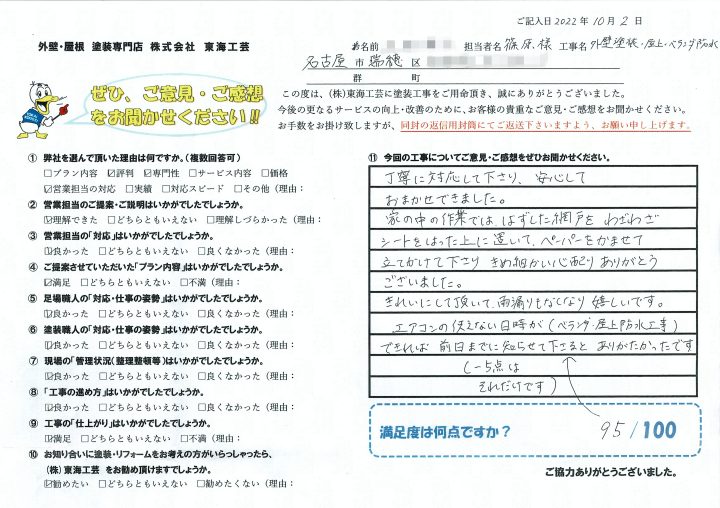 ご記入日 2022年 10月 2日
外壁・屋根 塗装専門店 株式会社 東海工芸
お名前 担当者名 篠原様 工事名 外壁塗装・屋上・ベランダ防水
名古屋市瑞穂区
群 町
ぜひ、ご意見・ご感想
をお聞かせください!!
この度は、(株)東海工芸に塗装工事をご用命頂き、誠にありがとうございました。
今後の更なるサービスの向上・改善のために、お客様の貴重なご意見・ご感想をお聞かせください。
お手数をお掛け致しますが、同封の返信用封筒にてご返送下さいますよう、お願い申し上げます。
① 弊社を選んで頂いた理由は何ですか。(複数回答可)
□プラン内容 ☑評判 ☑専門性 □サービス内容 □価格
☑営業担当の対応 □実績 □対応スピード □その他(理由:
② 営業担当のご提案・ご説明はいかがでしたでしょうか。
☑理解できた □どちらともいえない □理解しづらかった(理由:
③ 営業担当の「対応」はいかがでしたでしょうか。
☑良かった □どちらともいえない □良くなかった(理由:
④ ご提案させていただいた「プラン内容」はいかがでしたでしょうか。
☑満足 □どちらともいえない □不満(理由:
⑤ 足場職人の「対応・仕事の姿勢」はいかがでしたでしょうか。
☑良かった □どちらともいえない □良くなかった(理由:
⑥ 塗装職人の「対応・仕事の姿勢」はいかがでしたでしょうか。
☑良かった □どちらともいえない □良くなかった(理由:
⑦ 現場の「管理状況(整理整頓等)」はいかがでしたでしょうか。
☑良かった □どちらともいえない □良くなかった(理由:
⑧ 「工事の進め方」はいかがでしたでしょうか。
☑良かった □どちらともいえない □良くなかった(理由:
⑨ 工事の「仕上がり」はいかがでしたでしょうか。
☑満足 □どちらともいえない □不満(理由:
⑩ お知り合いに塗装・リフォームをお考えの方がいらっしゃったら、
(株)東海工芸 をお勧め頂けますでしょうか。
☑勧めたい □どちらともいえない □勧めたくない(理由:
⑪ 今回の工事についてご意見・ご感想をぜひお聞かせください。
丁寧に対応して下さり、安心して
おまかせできました。
家の中の作業では はずした網戸を わざわざ
シートをはった上に置いて、ペーパーをかませて
立てかけて下さり きめ細かい心配り ありがとう
ございました。
きれいにして頂いて、雨漏りもなくなり 嬉しいです。
エアコンの使えない日時が(ベランダ・屋上防水工事)
できれば 前日までに知らせて下さると ありがたかったです
(−5点は
それだけです)
満足度は何点ですか? 95/100
ご協力ありがとうございました。